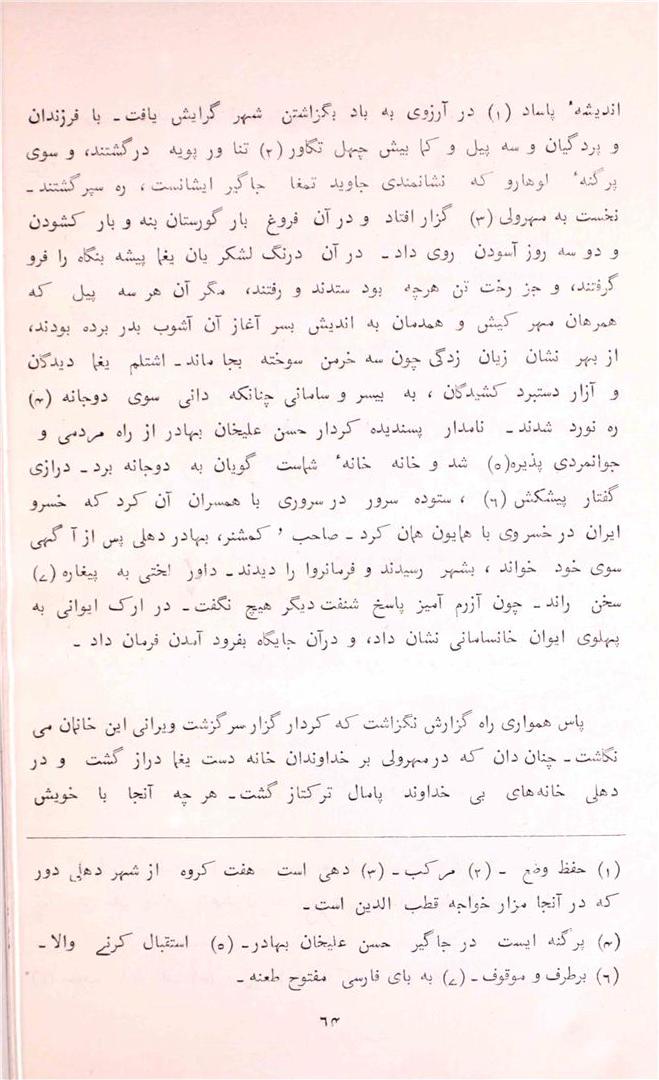 اندیشهٔ پاساد (۱) در آرزوی به باد بگزاشتن شهر گرایش یافت ـ با فرزندان
و پردگیان و سه پیل و کما بیش چهل تگاور (۲) تنا ور پویه درگشتند، و سوی
پرگنهٔ لوهارو که نشانمندی جاوید تمغا جاگیر ایشانست، ره سپرگشتند ـ
نخست به مهرولی (۳) گزار افتاد و در آن فروغ بار گورستان بنه و بار کشودن
و دو سه روز آسودن روی داد ـ در آن درنگ لشکر یان یغا پیشه بنگاه را فرو
گرفتند، و جز رخت تن هرچه بود ستدند و رفتند، مگر آن هر سه پیل که
همرهان مهر کیش و همدمان به اندیش بسر آغاز آن آشوب بدر برده بودند،
از بهر نشان زیان زدگی چون سه خرمن سوخته بجا ماند ـ اشتلم یغا دیدگان
و آزار دستبرد کشیدگان ، به بیسر و سامانی چنانکه دانی سوی دوجانه (۴)
ره نورد شدند ـ نامدار پسندیده کردار حسن علیخان بهادر از راه مردمی و
جوانمردی پذیره(۵) شد و خانه خانهٔ شماست گویان به دوجانه برد ـ درازی
گفتار پیشکش (۶) ، ستوده سرور در سروری با همسران آن کرد که خسرو
ایران در خسروی با همایون همان کرد ـ صاحب ' کمشنر، بهادر دهلی پس از آ گہی
سوی خود خواند ، بشهر رسیدند و فرمانروا را دیدند ـ داور لختی به پیغاره (۷)
سخن راند ـ چون آزرم آمیز پاسخ شنفت دیگر هیچ نگفت ـ در ارک ایوانی به
پہلوی ایوان خانسامانی نشان داد، و درآن جایگاه بفرود آمدن فرمان داد ـ
پاس همواری راه گزارش نگزاشت که کردار گزار سرگزشت ویرانی این خانمان می
نگاشت ـ چنان دان که درمهرولی بر خداوندان خانه دست یغا دراز گشت و در
دهلی خانه‌های بی خداوند پامال ترکتاز گشت ـ هر چه آنجا با خویش
(۱) حفظ وضع ـ (۲) مرکب ـ (۳) دهی است هفت کروه از شهر دهلی دور
که در آنجا مزار خواجه قطب الدین است ـ
(۴) پرگنه ایست در جاگیر حسن علیخان بهادر ـ (۵) استقبال کرنے والا ـ
(۶) برطرف و موقوف ـ (۷) به بای فارسی مفتوح طعنه ـ
۶۴